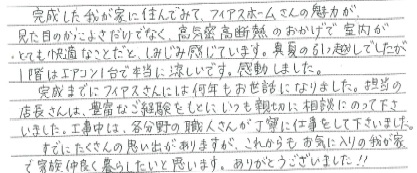 完成した我が家に住んでみて、フィアスホームさんの魅力が、
見た目のかっこよさだけでなく、高気密高断熱のおかげで室内が
とても快適なことだと、しみじみ感じています。真夏の引っ越しでしたが
1階はエアコン1台で本当に涼しいです。感動しました。
完成までにフィアスさんには何年もお世話になりました。担当の
店長さんは、豊富なご経験をもとに、いつも親切に相談にのって下さ
いました。工事中は、各分野の職人さんが丁寧に仕事をして下さいました。
すでにたくさんの思い出がありますが、これからもお気に入りの我が家
で家族仲良く暮らしたいと思います。ありがとうございました!!